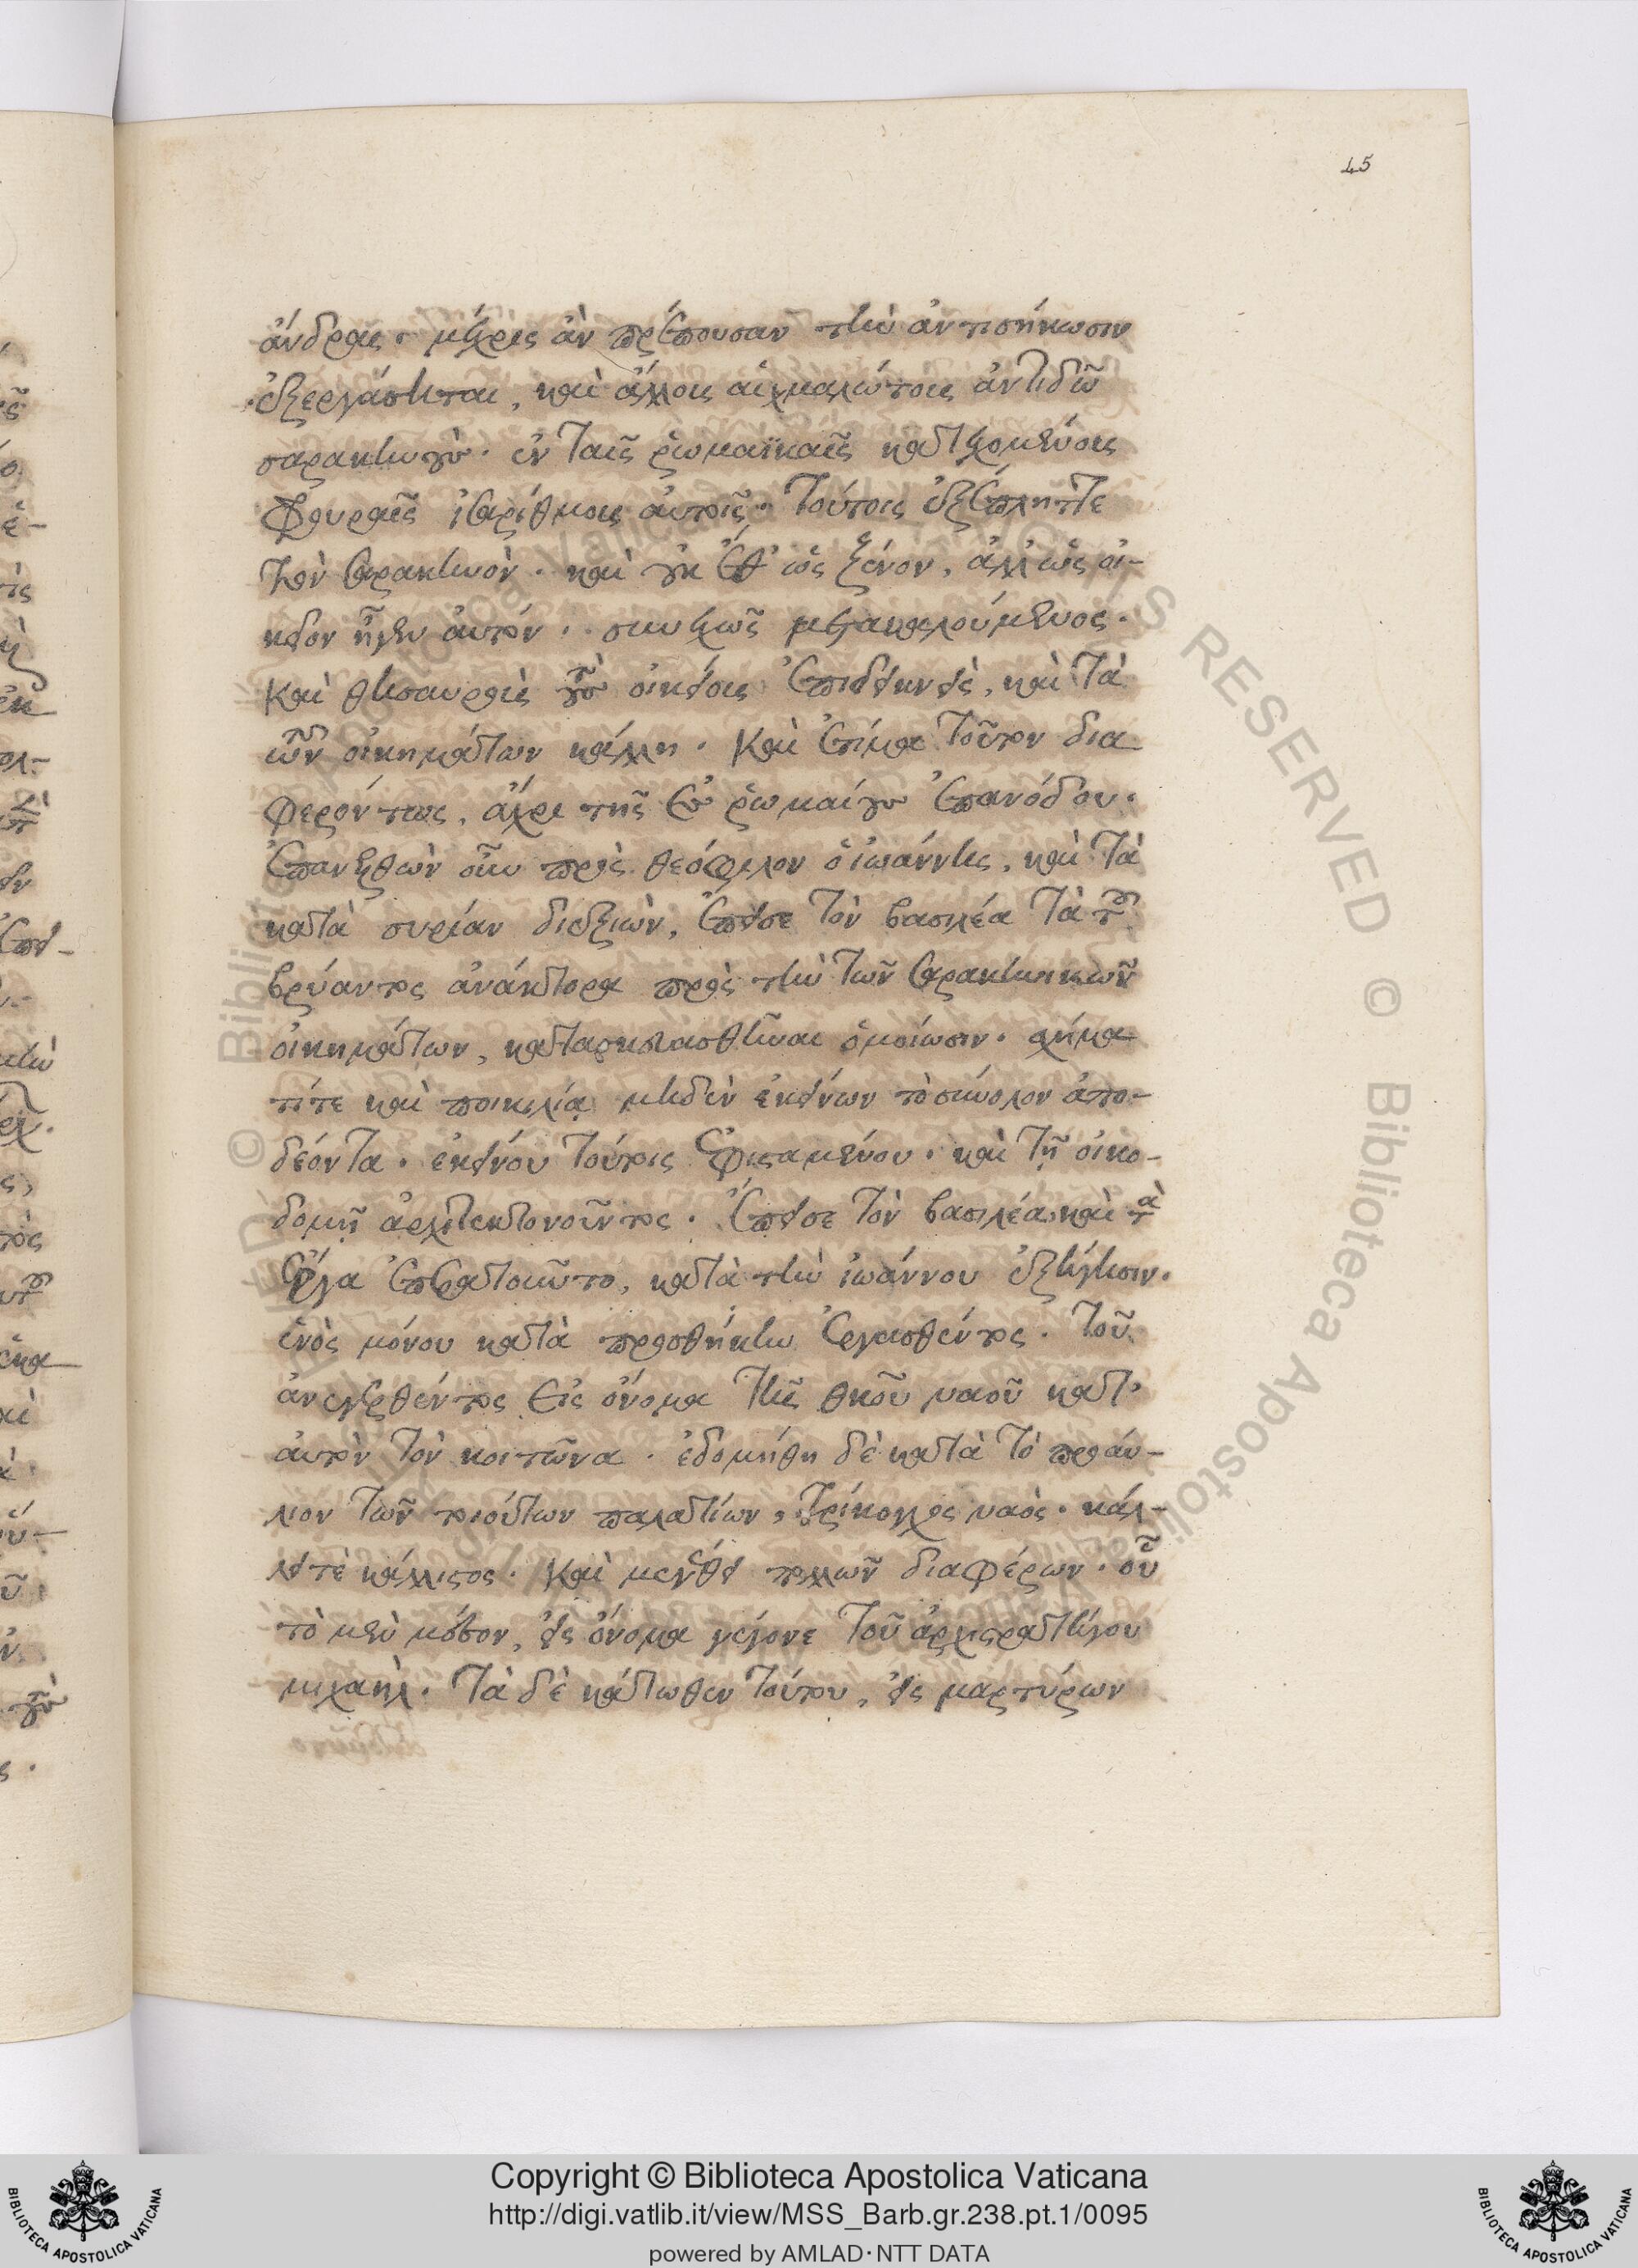 45
ἄνδρας· μέχρις ἂν πρέπουσαν τὴν ἀντισήκωσιν
ἐξεργάσηται, καὶ ἄλλοις αἰχμαλώτοις ἀντιδῷ
σαρακηνῶν· ἐν ταῖς ῥωμαϊκαῖς κατεχομένοις
φρουραῖς ἰσαρίθμοις αὐτοῖς· τούτοις ἐξέπληττε
τὸν σαρακηνὸν· καὶ οὐκ ἔθ' ὡς ξένον, ἀλλ' ὡς οἰ-
κεῖον ἦγεν αὐτόν·· συνεχῶς μετακαλούμενος·
καὶ θησαυροὺς τοὺς οἰκείους ἐπιδεικνὺς, καὶ τὰ
τῶν οἰκημάτων κάλλη· καὶ ἐτίμα τοῦτον δια
φερόντως, ἄχρι τῆς ἐν ῥωμαίοις ἐπανόδου·
ἐπανελθὼν οὖν πρὸς θεόφιλον ὁ ἰωάννης, καὶ τὰ
κατὰ συρίαν διεξιὼν, ἔπεισε τὸν βασιλέα τὰ τοῦ
βρύαντος ἀνάκτορα πρὸς τὴν τῶν σαρακηνικῶν
οἰκημάτων, κατασκευασθῆναι ὁμοίωσιν· σχήμα
τί τε καὶ ποικιλίᾳ μηδὲν ἐκείνων τὸ σύνολον ἀπο-
δέοντα· ἐκείνου τούτοις ἐφισταμένου· καὶ τῇ οἰκο-
δομῇ ἀρχιτεκτονοῦντος· ἔπεισε τὸν βασιλέα καὶ τὰ
ἔργα ἐπεραιοῦντο, κατὰ τὴν ἰωάννου ἐξήγησιν·
ἑνὸς μόνου κατὰ προσθήκην ἐργασθέντος· τοῦ
ἀνεγερθέντος εἰς ὄνομα τῆς θκοῦ ναοῦ κατ'
αὐτὸν τὸν κοιτῶνα· ἐδομήθη δὲ κατὰ τὸ προαύ-
λιον τῶν τοιούτων παλατίων, τρίκογχος ναὸς· κάλ-
λει τὲ κάλλιστος· καὶ μεγέθει πολλῶν διαφέρων· οὗ
τὸ μὲν μέσον, εἰς ὄνομα γέγονε τοῦ ἀρχιστρατήγου
μιχαὴλ· τὰ δὲ κάτωθεν τούτου, εἰς μαρτύρων
Copyright © Biblioteca Apostolica Vaticana
http://digi.vatlib.it/view/MSS_Barb.gr.238.pt.1/0095
powered by AMLAD·NTT DATA